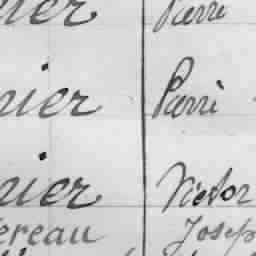 nier Pierre
nier Pierre
nier Victor
ereau Joseph